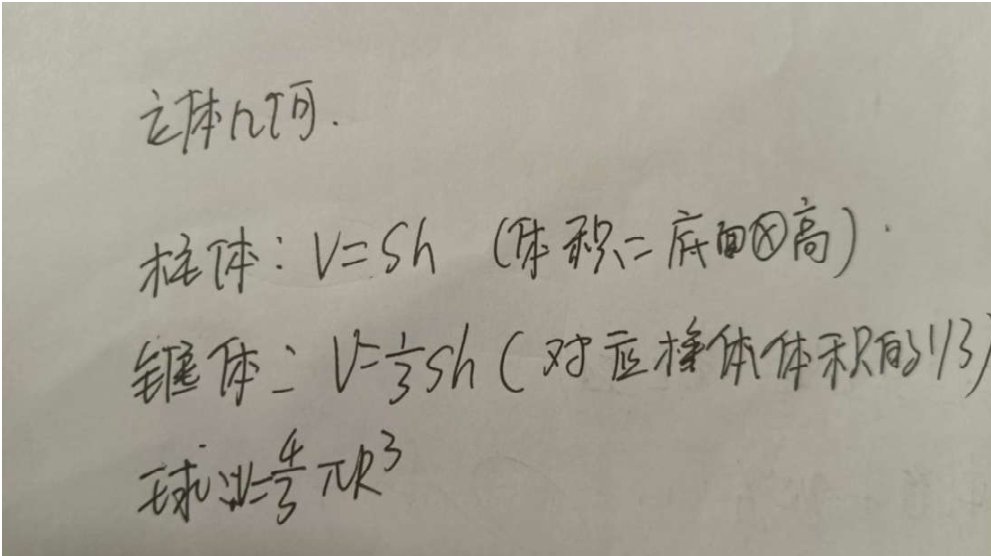 立体几何.
柱体：V=Sh (体积=底面⊗高).
锥体：V=1/3Sh (对应柱体体积的1/3)
球：V=4/3πR³